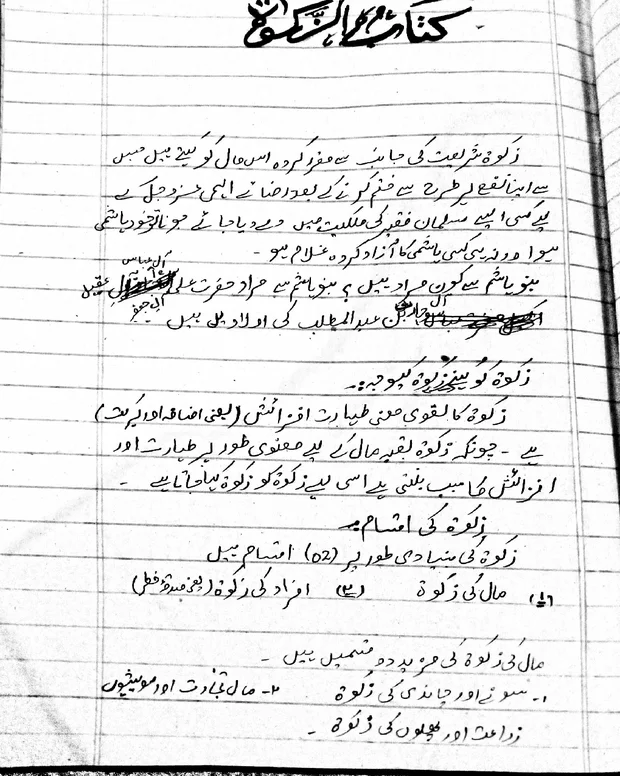 کتاب الزکوۃ
زکوۃ شریعت کی جانب سے مقرر کردہ اس مال کو کہتے ہیں جس
سے اپنا نفع ہر طرح سے ختم کرنے کے بعد رضائے الہی عزوجل کے
لیے کسی ایسے مسلمان فقیر کی ملکیت میں دے دیا جائے جو نا تو خود ہاشمی
ہو اور نہ ہی کسی ہاشمی کا آزاد کردہ غلام ہو۔
بنو ہاشم سے کون مراد ہیں؟ بنو ہاشم سے مراد حضرت علی آل عباس عقیل
آل جعفر
آل بن عبدالمطلب کی اولادیں ہیں
زکوۃ کو زکوۃ کہنے کی وجہ:۔
زکوۃ کا لغوی معنی طہارت افزائش (یعنی اضافہ اور برکت)
ہے ۔ چونکہ زکوۃ بقیہ مال کے لیے معنوی طور پر طہارت اور
افزائش کا سبب بنتی ہے اسی لیے زکوۃ کو زکوۃ کہا جاتا ہے ۔
زکوۃ کی اقسام:۔
زکوۃ کی بنیادی طور پر (02) اقسام ہیں
(۱) مال کی زکوۃ (۲) افراد کی زکوۃ (یعنی صدقۂ فطر)
مال کی زکوۃ کی مزید دو قسمیں ہیں ۔
۱۔ سونے اور چاندی کی زکوۃ ۲۔ مال تجارت اور مویشیوں
زراعت اور پھلوں کی زکوۃ ۔